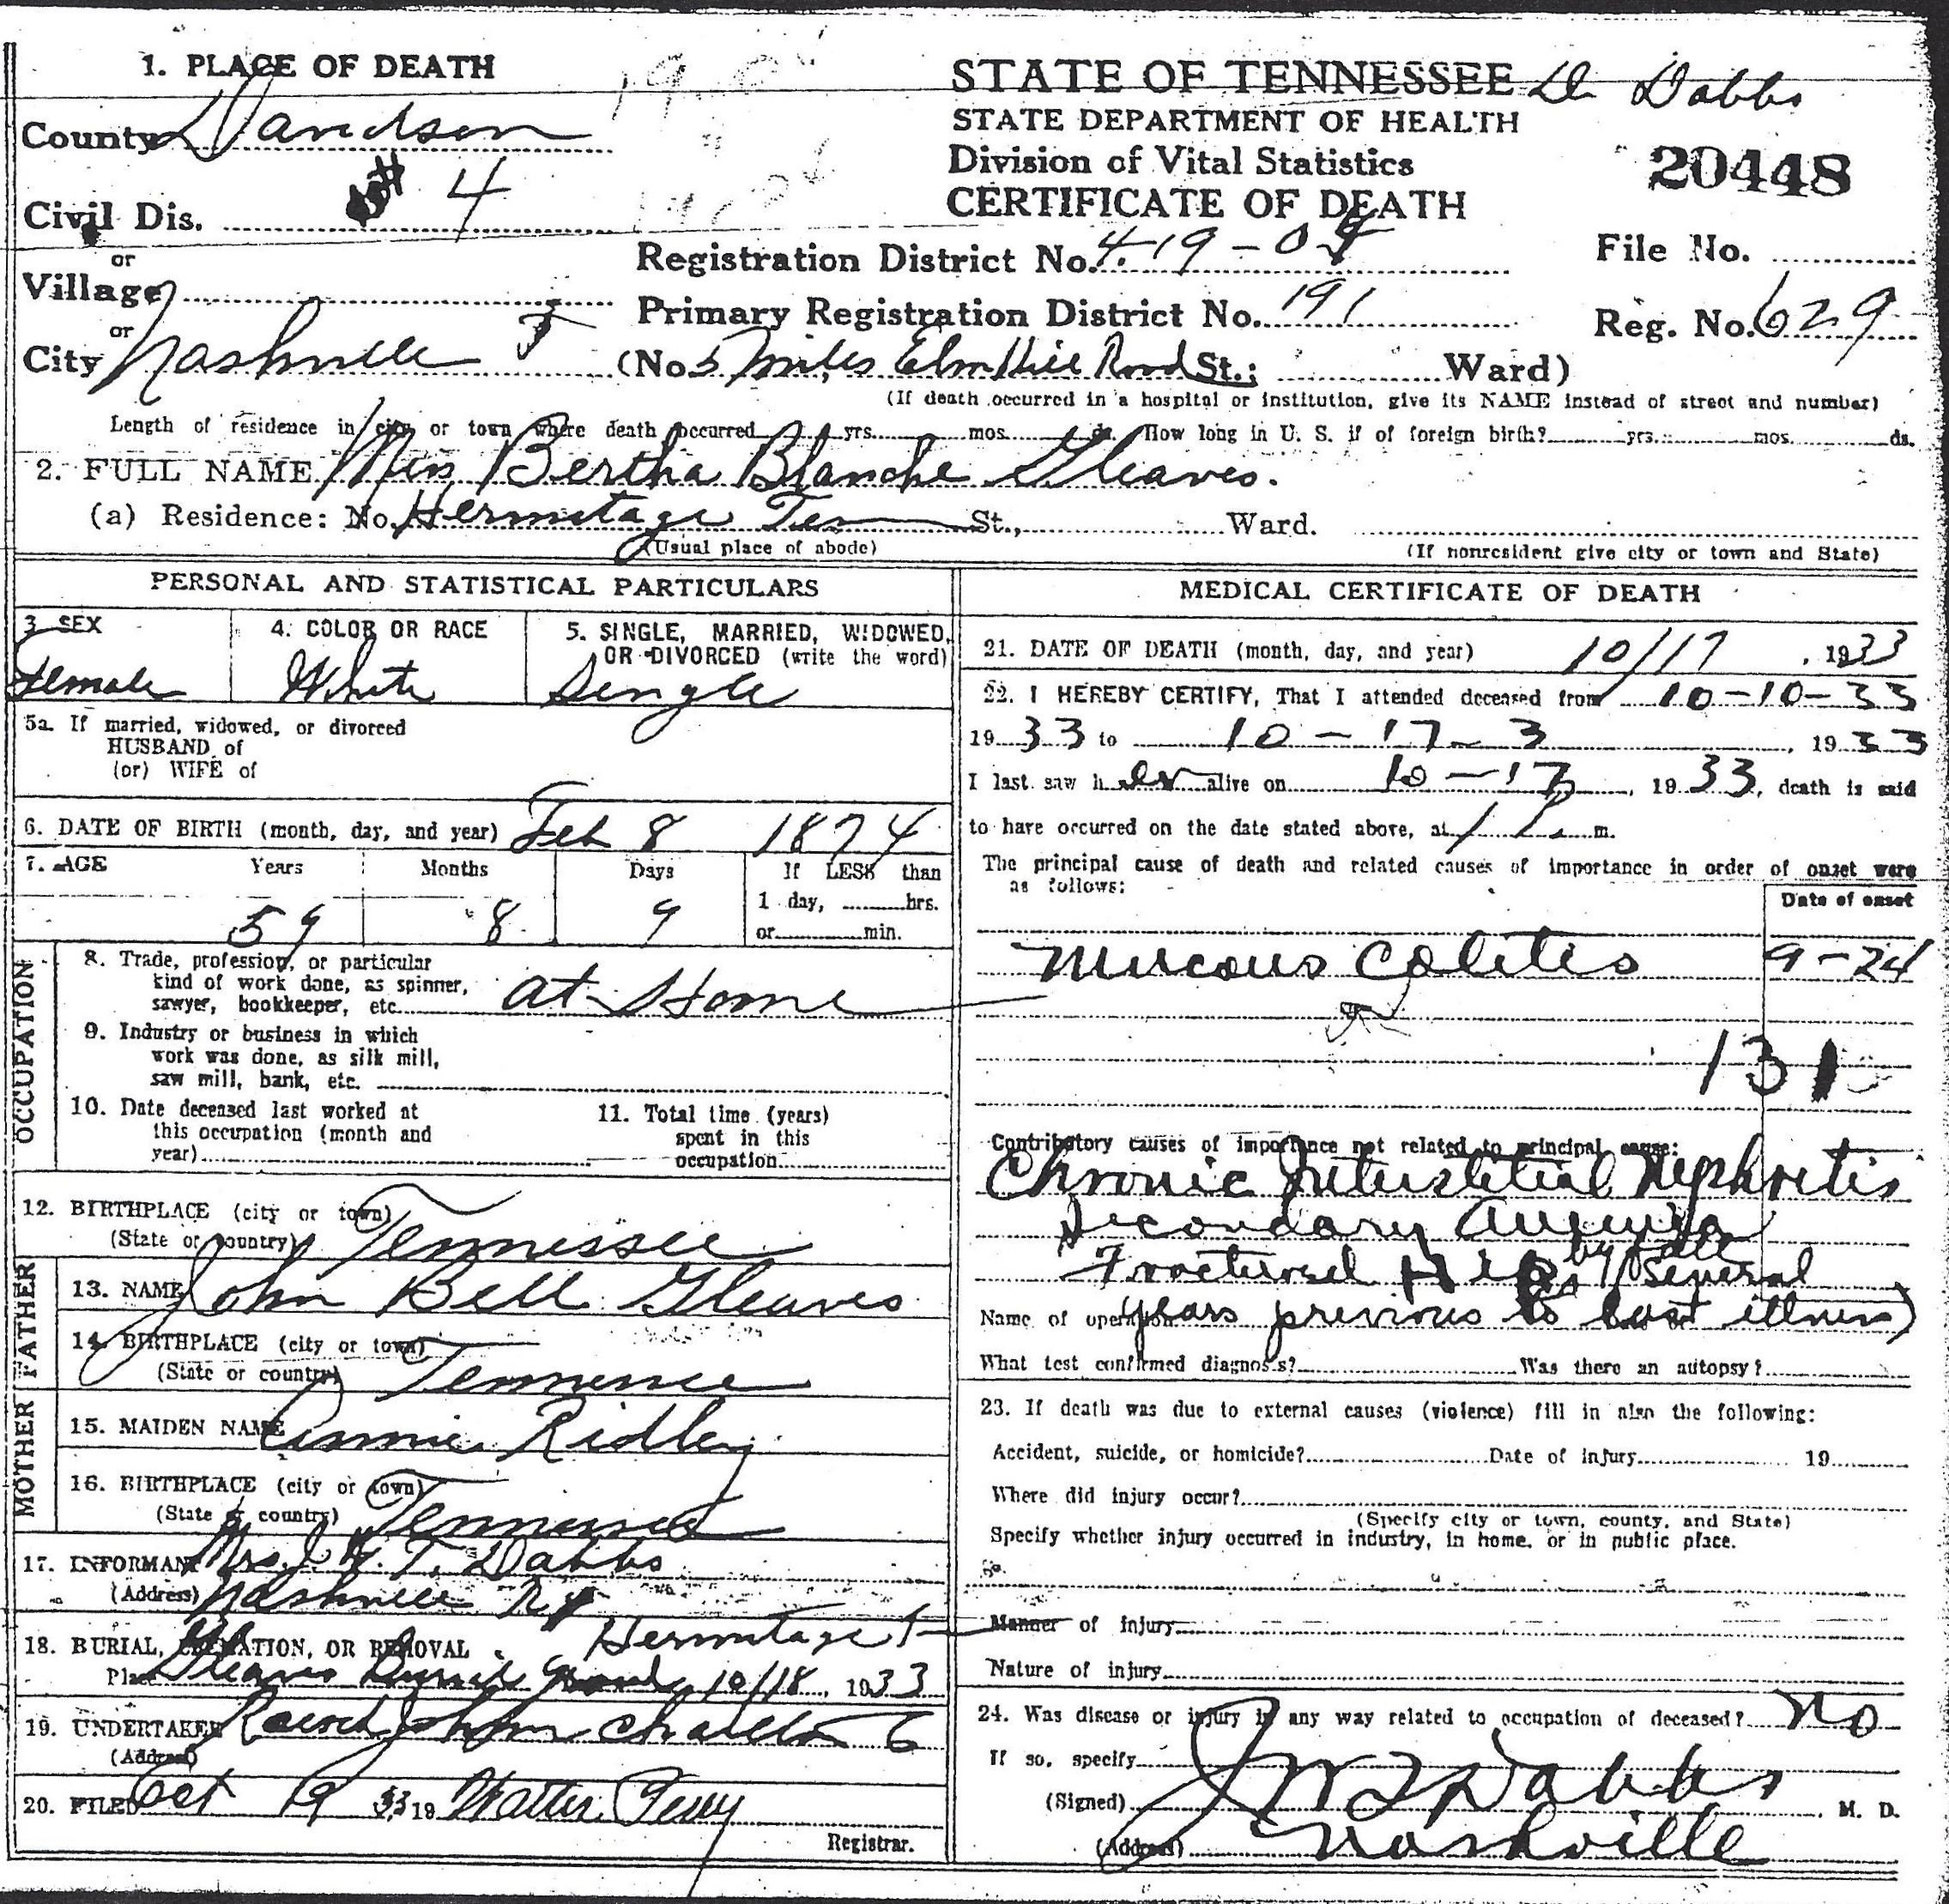 1. PLACE OF DEATH
County Davidson
Civil Dis. 4
or
Village
or
City Nashville
STATE OF TENNESSEE Dr Dabbs
STATE DEPARTMENT OF HEALTH
Division of Vital Statistics
CERTIFICATE OF DEATH
20448
Registration District No. 419-04
File No.
Primary Registration District No. 191
Reg. No. 629
(No 5 miles Elm Hill Road St.; Ward)
(If death occurred in a hospital or institution, give its NAME instead of street and number)
Length of residence in city or town where death occurred yrs. mos. ds. How long in U. S. if of foreign birth? yrs. mos. ds.
2. FULL NAME Miss Bertha Blanche Gleaves.
(a) Residence: No. Hermitage Tenn St., Ward.
(Usual place of abode) (If nonresident give city or town and State)
PERSONAL AND STATISTICAL PARTICULARS
3. SEX 4. COLOR OR RACE 5. SINGLE, MARRIED, WIDOWED,
OR DIVORCED (write the word)
Female White Single
5a. If married, widowed, or divorced
HUSBAND of
(or) WIFE of
6. DATE OF BIRTH (month, day, and year) Feb 8 1874
7. AGE Years Months Days If LESS than
1 day, hrs.
59 8 9 or min.
OCCUPATION
8. Trade, profession, or particular
kind of work done, as spinner,
sawyer, bookkeeper, etc. at Home
9. Industry or business in which
work was done, as silk mill,
saw mill, bank, etc.
10. Date deceased last worked at
this occupation (month and
year)
11. Total time (years)
spent in this
occupation
12. BIRTHPLACE (city or town)
(State or country) Tennessee
FATHER
13. NAME John Bell Gleaves
14. BIRTHPLACE (city or town)
(State or country) Tennessee
MOTHER
15. MAIDEN NAME Annie Ridley
16. BIRTHPLACE (city or town)
(State or country) Tennessee
17. INFORMANT Mrs. J. W. T. Dabbs
(Address) Nashville
18. BURIAL, CREMATION, OR REMOVAL Hermitage T
Place Gleaves Burial Ground 10/18, 1933
19. UNDERTAKER
(Address)
20. FILED Oct 19 33 19 Walter
Registrar.
MEDICAL CERTIFICATE OF DEATH
21. DATE OF DEATH (month, day, and year) 10/17, 1933
22. I HEREBY CERTIFY, That I attended deceased from 10-10-33
1933 to 10-17-3, 1933
I last saw her alive on 10-17, 1933, death is said
to have occurred on the date stated above, at 1 P. m.
The principal cause of death and related causes of importance in order of onset were
as follows:
Date of onset
Mucous Colitis 9-24
131
Contributory causes of importance not related to principal cause:
Chronic Interstitial Nephritis
Secondary Anemia
Fractured Hip by fall (Several
Name of operation years previous to last illness)
What test confirmed diagnosis? Was there an autopsy?
23. If death was due to external causes (violence) fill in also the following:
Accident, suicide, or homicide? Date of injury 19
Where did injury occur?
(Specify city or town, county, and State)
Specify whether injury occurred in industry, in home, or in public place.
Manner of injury
Nature of injury
24. Was disease or injury in any way related to occupation of deceased? No
If so, specify
(Signed) J W T Dabbs, M. D.
(Address) Nashville